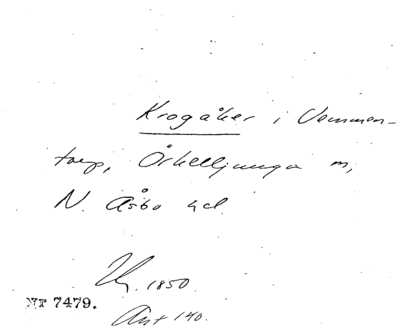 Krogåker i Vemmen-
torp, Örkelljunga m,
N. Åsbo hd.
1850.
Nr 7479.
Ant 140.